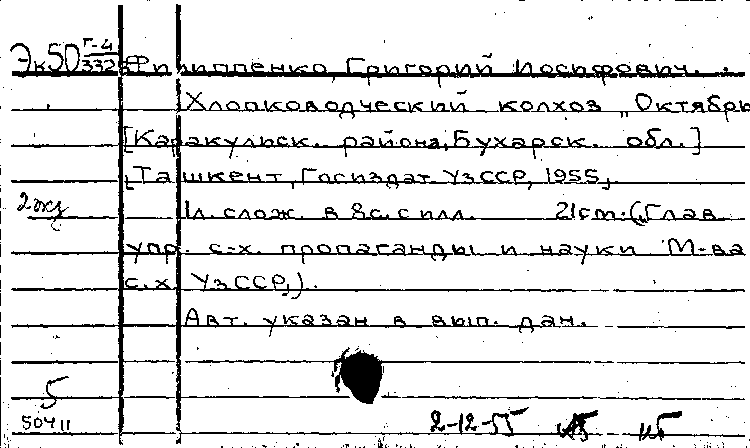 Эк50 Г-4
332
Филиппенко, Григорий Иосифович.
Хлопководческий колхоз „Октябрь
[Каракульск. района, Бухарск. обл.]
[Ташкент, Госиздат УзССР, 1955]
2 экз
1л. слож. в 8с. с илл. 21 cm. (Глав.
упр. с-х. пропаганды и науки М-ва
с.х. УзССР).
Авт. указан в вып. дан.
5
50411
2-12-55